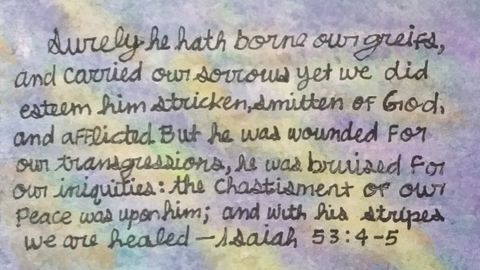 Surely he hath borne our greifs,
and carried our sorrows yet we did
esteem him stricken, smitten of God,
and afflicted. But he was wounded for
our transgressions, he was bruised for
our iniquities: the chastisment of our
Peace was upon him; and with his stripes
we are healed - Isaiah 53:4-5